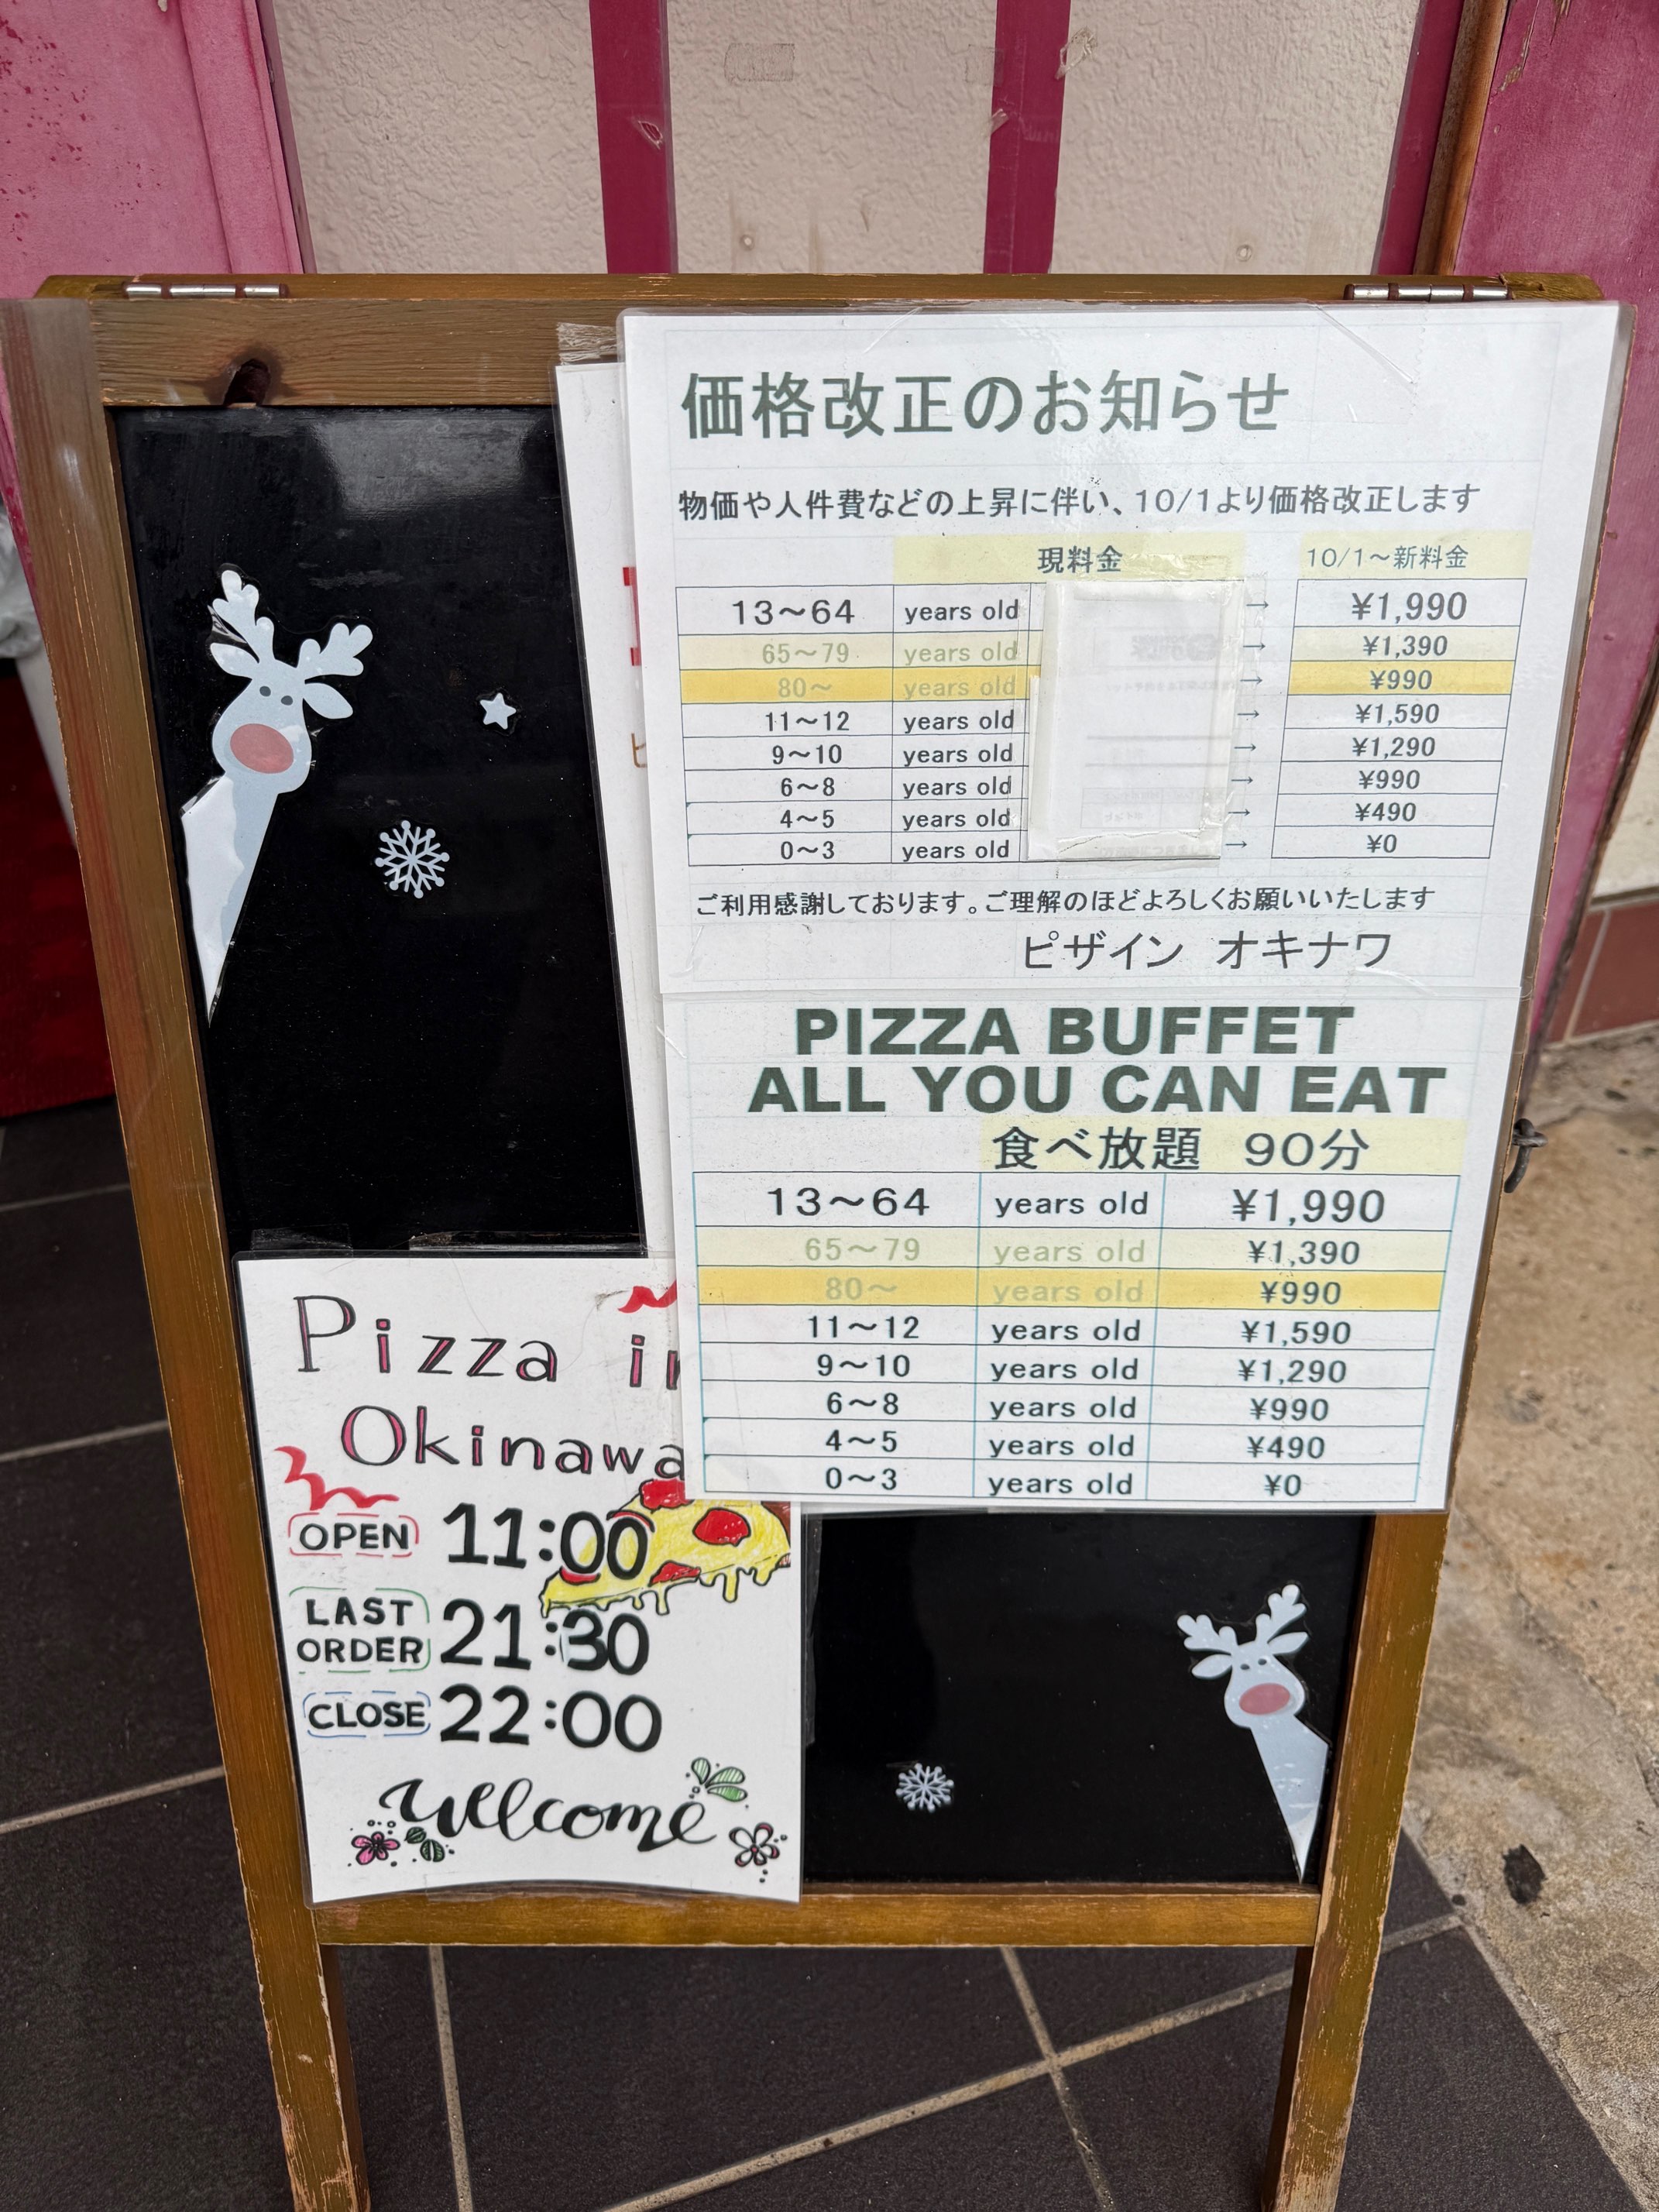 価格改正のお知らせ
物価や人件費などの上昇に伴い、10/1より価格改正します
現料金 10/1～新料金
13～64 years old → ¥1,990
65～79 years old → ¥1,390
80～ years old → ¥990
11～12 years old → ¥1,590
9～10 years old → ¥1,290
6～8 years old → ¥990
4～5 years old → ¥490
0～3 years old → ¥0
ご利用感謝しております。ご理解のほどよろしくお願いいたします
ピザイン オキナワ
PIZZA BUFFET
ALL YOU CAN EAT
食べ放題 90分
13～64 years old ¥1,990
65～79 years old ¥1,390
80～ years old ¥990
11～12 years old ¥1,590
9～10 years old ¥1,290
6～8 years old ¥990
4～5 years old ¥490
0～3 years old ¥0
Pizza in
Okinawa
OPEN 11:00
LAST ORDER 21:30
CLOSE 22:00
welcome